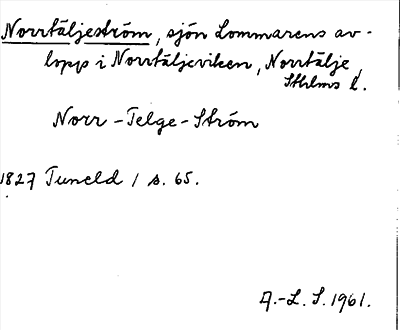 Norrtäljeström, sjön Lommarens av-
lopp i Norrtäljeviken, Norrtälje,
Sthlms l.
Norr-Telge-Ström
1827 Tuneld 1 s. 65.
A.-L. S. 1961.